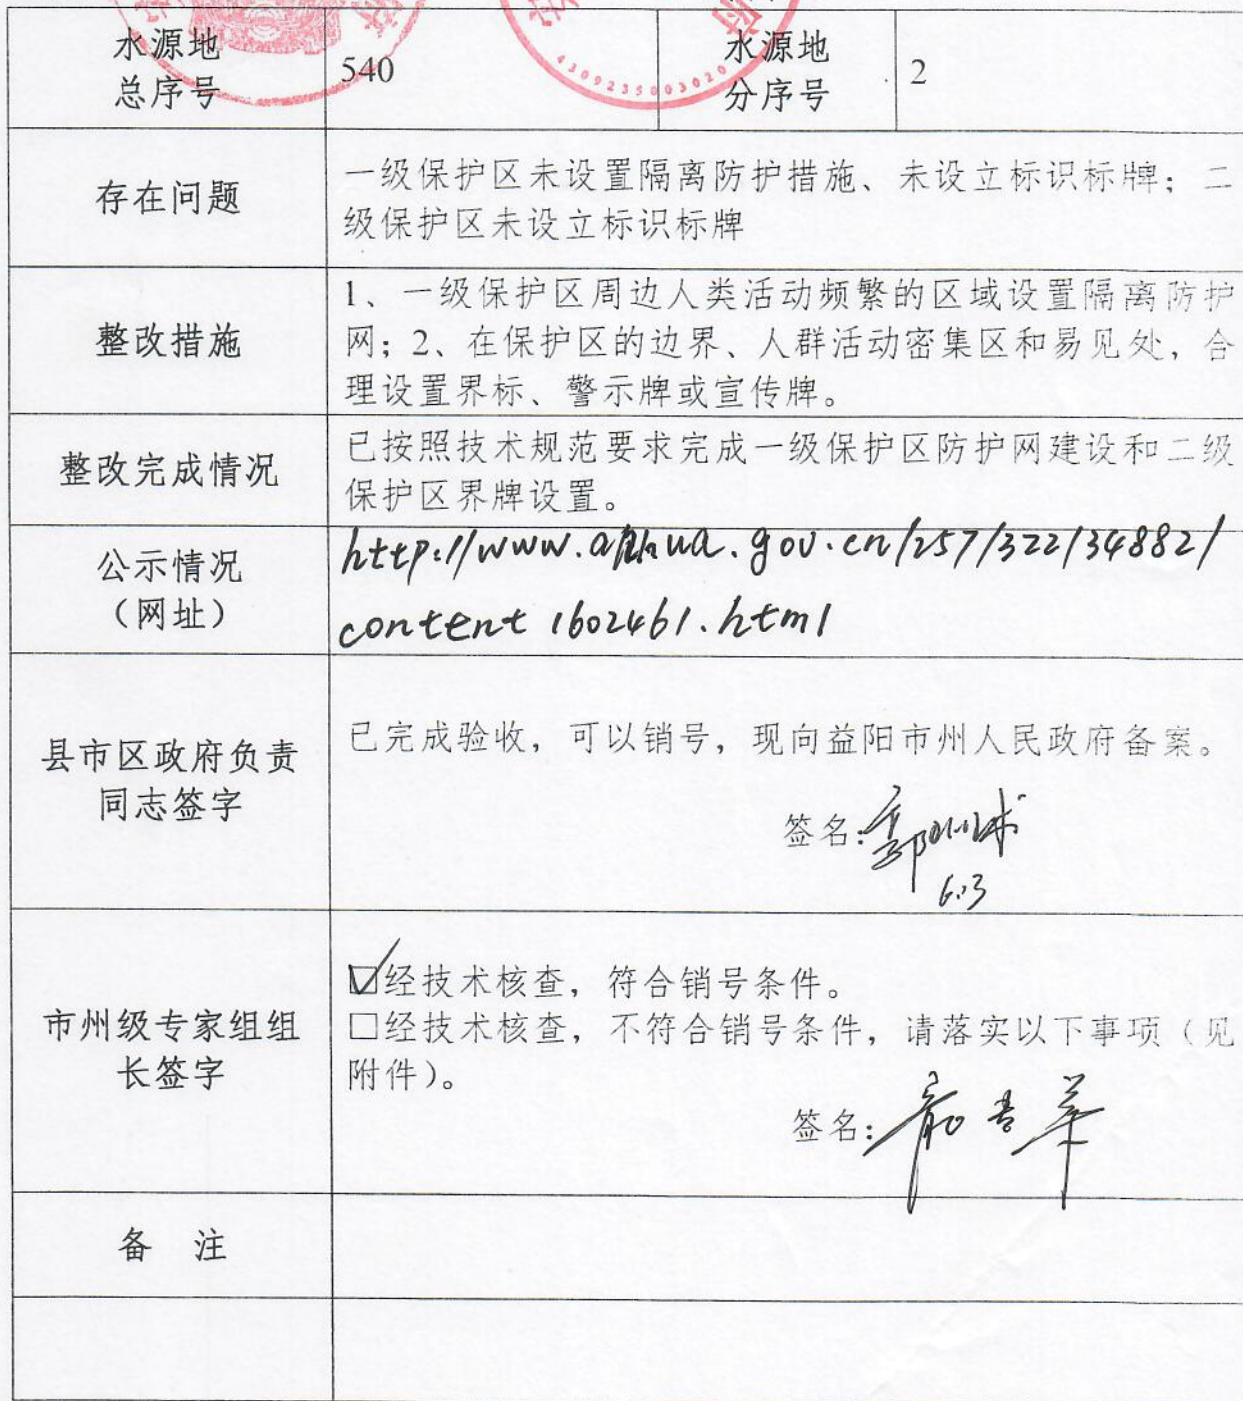 水源地
总序号
540
水源地
分序号
2
4309235003020
存在问题
一级保护区未设置隔离防护措施、未设立标识标牌；二
级保护区未设立标识标牌
整改措施
1、一级保护区周边人类活动频繁的区域设置隔离防护
网；2、在保护区的边界、人群活动密集区和易见处，合
理设置界标、警示牌或宣传牌。
整改完成情况
已按照技术规范要求完成一级保护区防护网建设和二级
保护区界牌设置。
公示情况
（网址）
http://www.anhua.gov.cn/257/322/34882/
content 1602461.html
县市区政府负责
同志签字
已完成验收，可以销号，现向益阳市州人民政府备案。
签名：
6.3
市州级专家组组
长签字
☑经技术核查，符合销号条件。
□经技术核查，不符合销号条件，请落实以下事项（见
附件）。
签名：
备 注